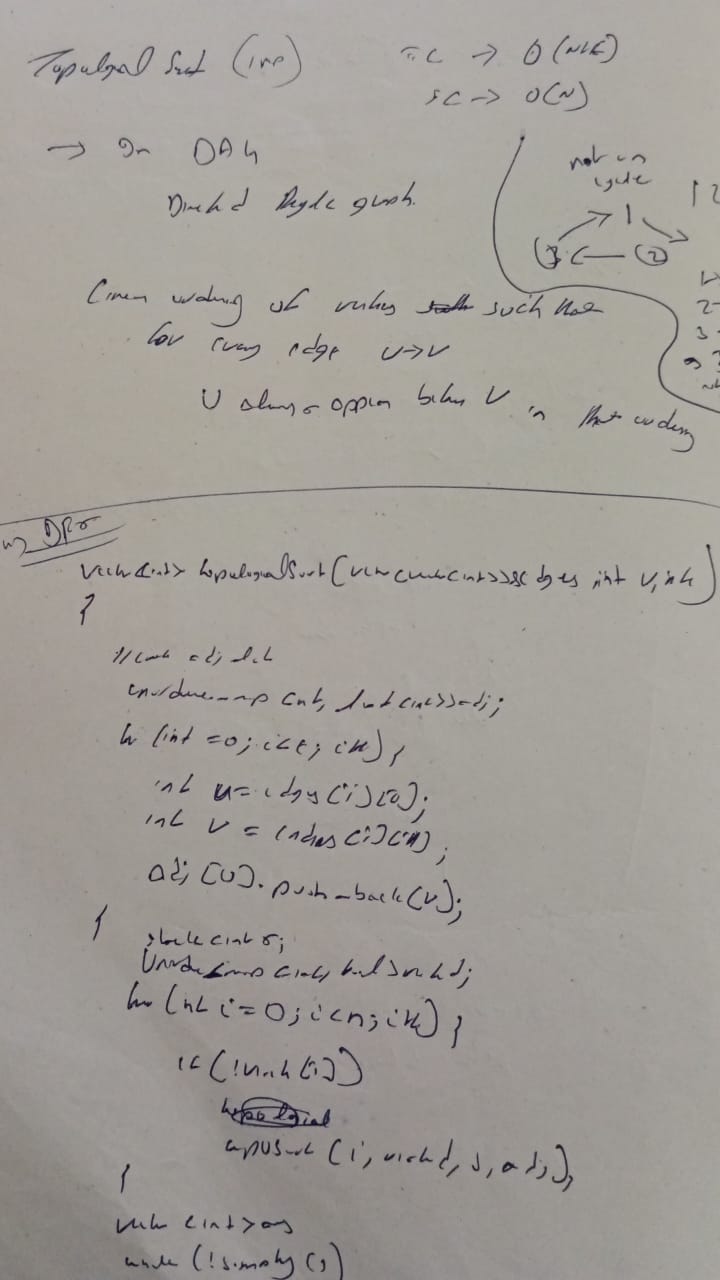 Topological Sort (imp)
TC → O(N+E)
SC → O(N)
→ In DAG
Directed Acyclic graph.
not in
cycle
1
3
2
Linear ordering of vertices such that
for every edge U→V
U always appear before V in that ordering
DFS
vector<int> topologicalSort(vector<vector<int>>& edges, int v, int
{
// adj list
unordered_map<int, list<int>> adj;
for (int =0; i<e; i++) {
int u = edges[i][0];
int v = edges[i][1];
adj[u].push_back(v);
}
stack<int> s;
unordered_map<int, bool> visited;
for (int i=0; i<n; i++) {
if (!visited[i])
topoSort(i, visited, s, adj);
}
vector<int> ans
while (!s.empty()